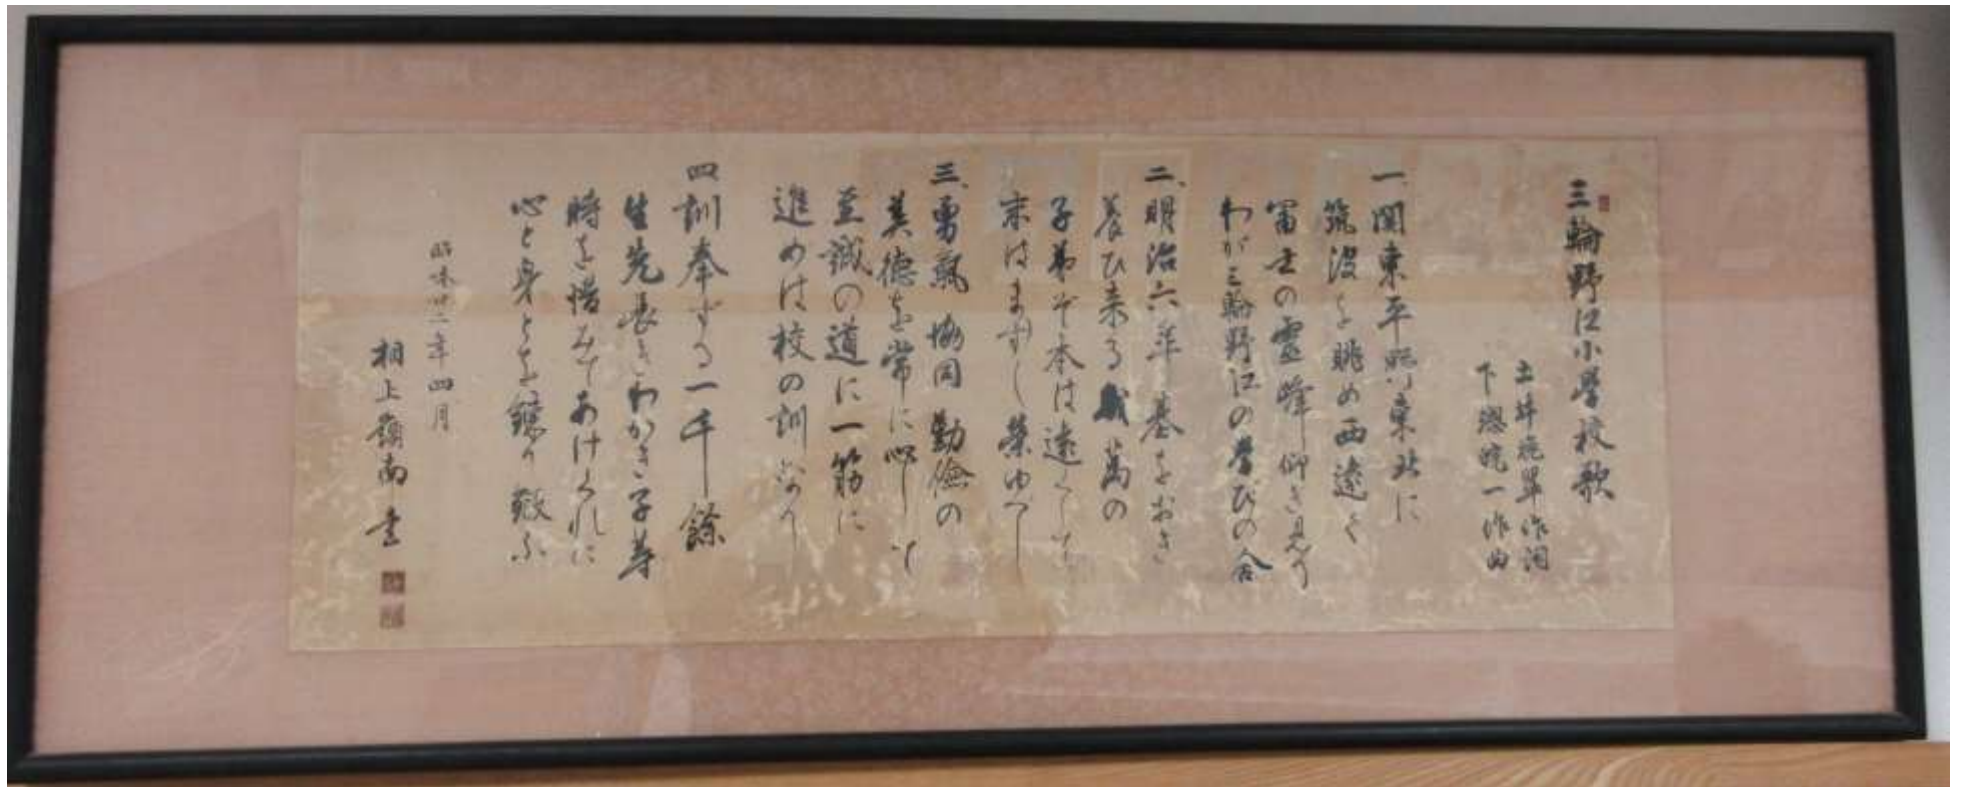 三輪野江小學校歌
作詞
下總皖一作曲
一、関東平野東北に
筑波を眺め西遠く
富士の靈峰仰ぎ見る
わが三輪野江の學びの舎
二、明治六年基をおき
養ひ来る幾萬の
子弟ぞ本は遠くして
末はますます榮ゆべし
三、勇氣協同勤儉の
美德を常に心して
至誠の道に一筋に
進めは校の訓なり
四訓奉ずる一千餘
生先長きわかき子等
時を惜みてあけくれに
心と身とを鍛ふ
昭和卅二年四月
相上 南書